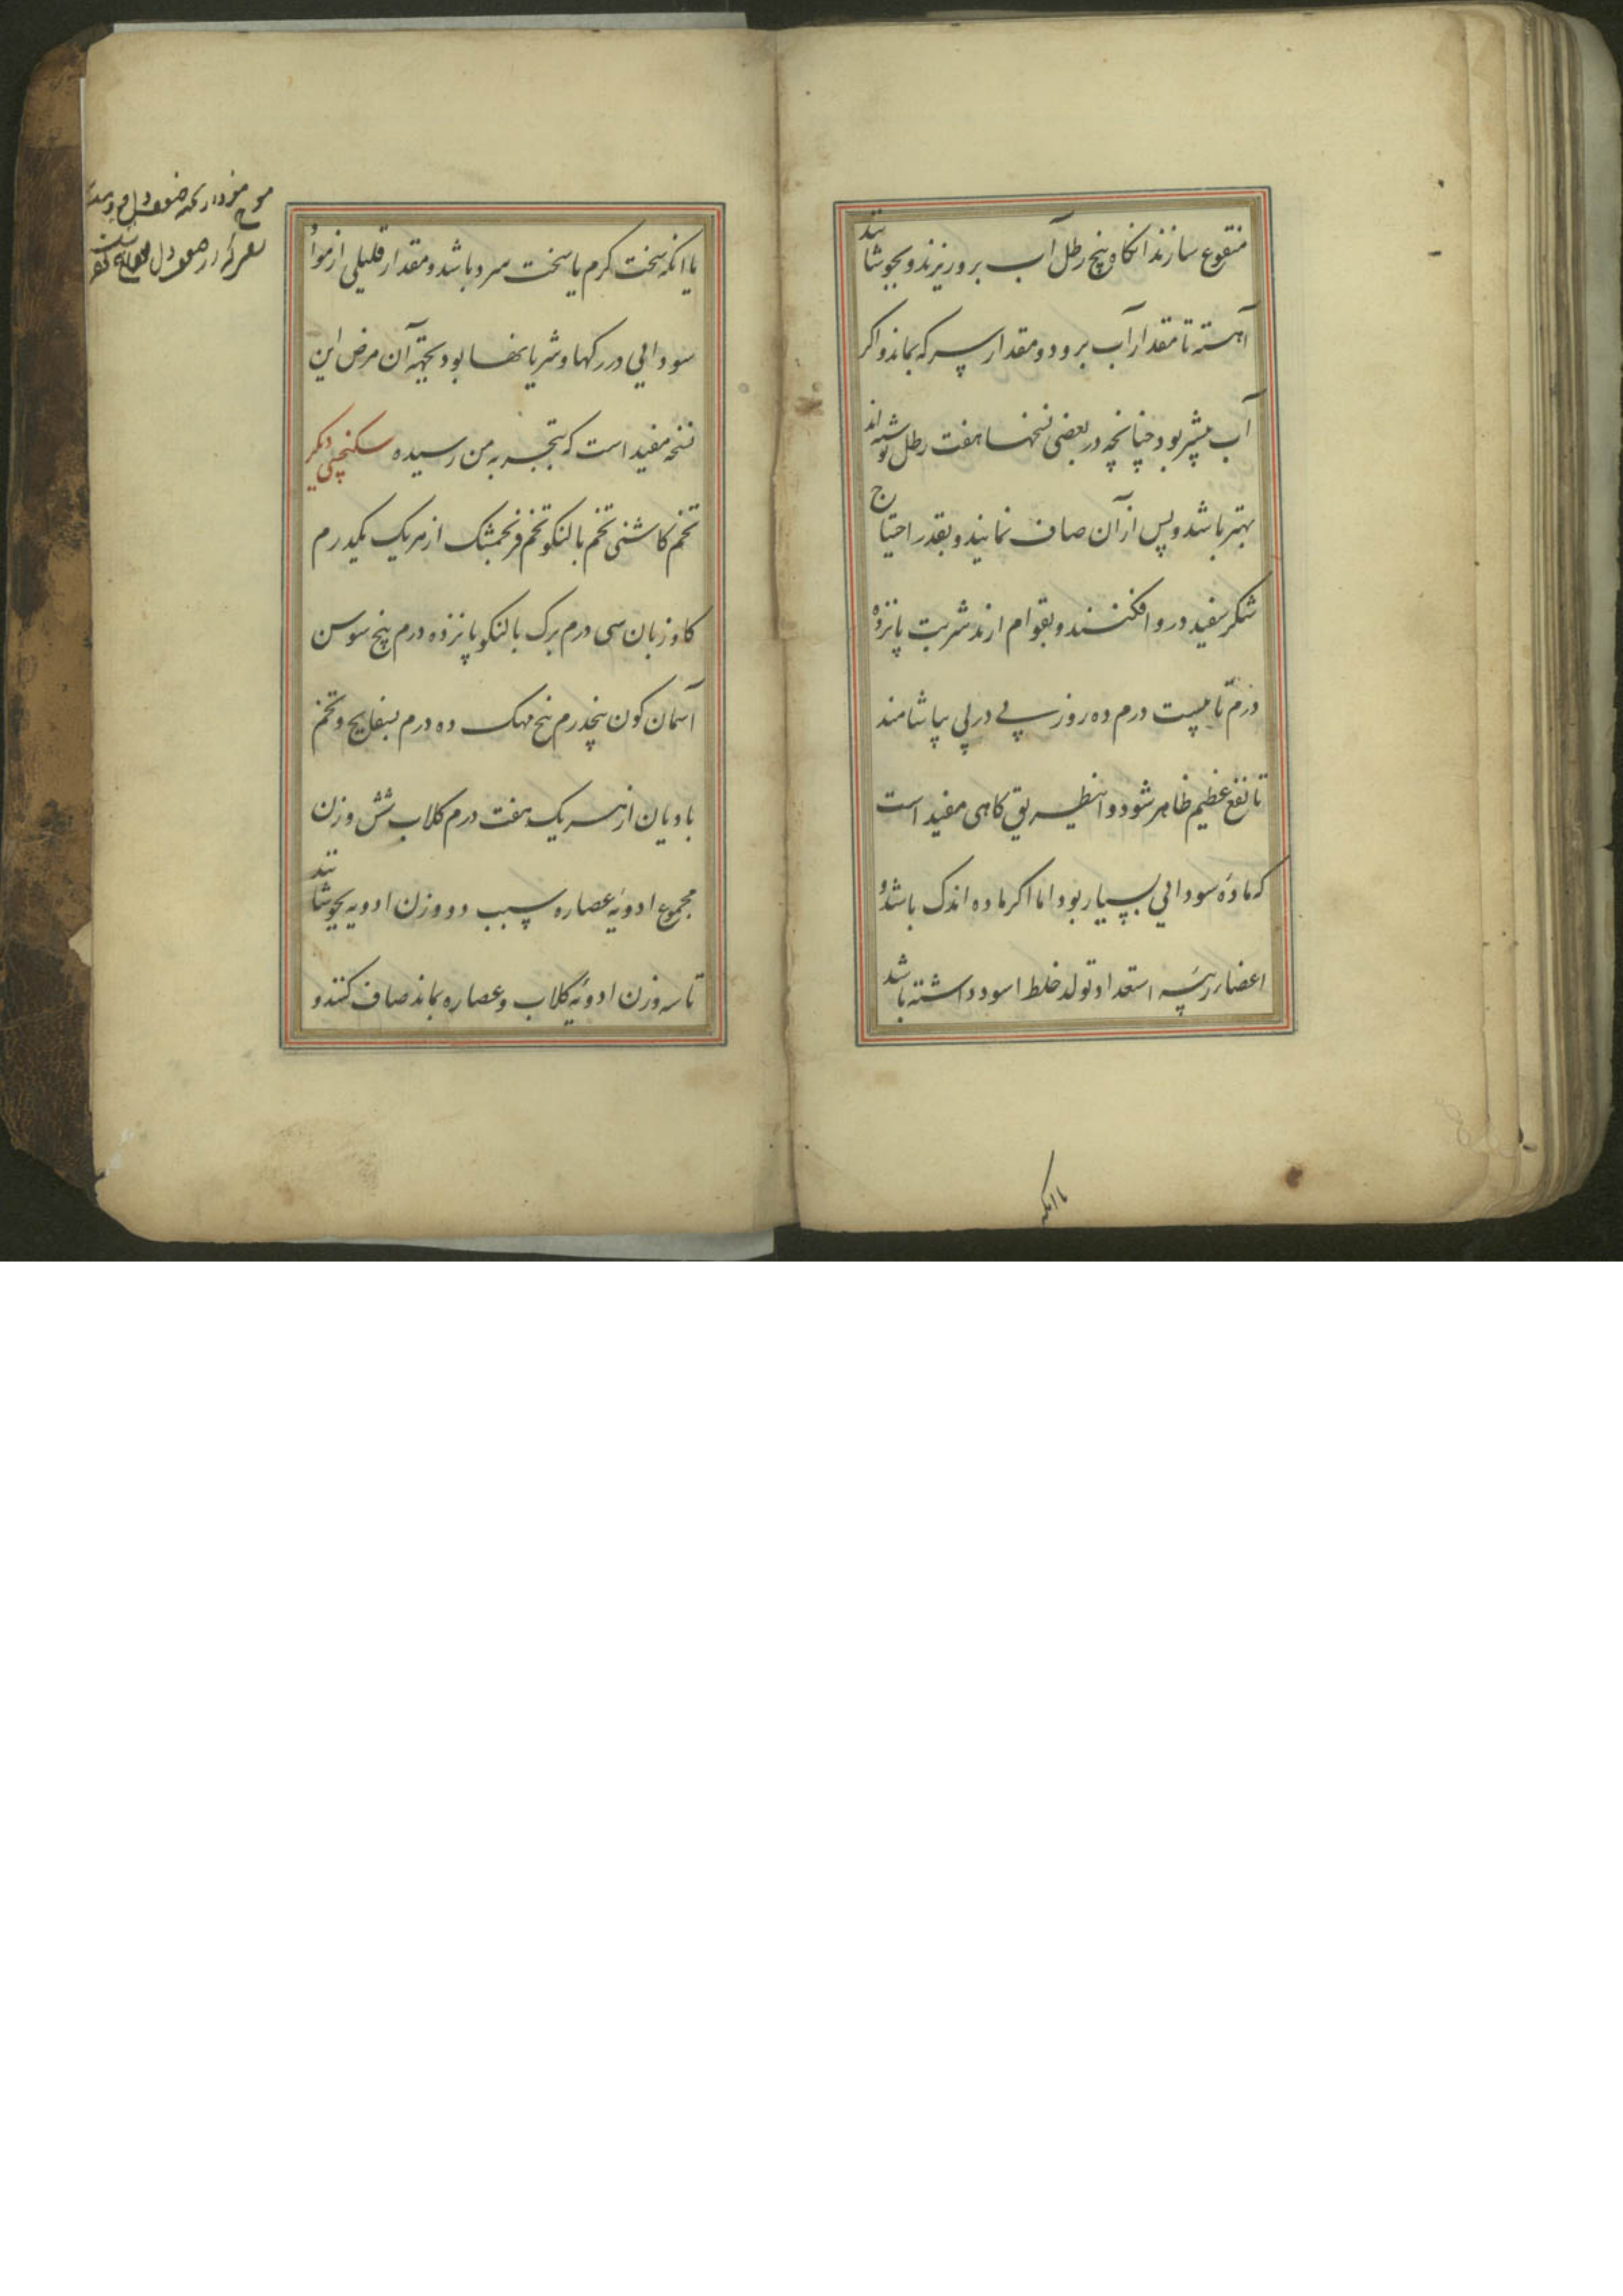 منقوع سازند آنکاه پنج رطل آب برو ریزند و بجوشانند
آهسته تا مقدار آب برود و مقدار سرکه بماند و اکر
آب بیشتر بود چنانچه در بعضی نسخها هفت رطل نوشته اند
بهتر باشد و پس از آن صاف نمایند و بقدر احتیاج
شکر سفید درو افکنند و بقوام ارند شربت پانزده
درم تا بیست درم ده روز پی در پی بیاشامند
تا نفع عظیم ظاهر شود و اینطریق کاهی مفید است
که مادۀ سودایی بسیار بود اما اکر ماده اندک باشد و
اعضار رئیسه استعداد تولد خلط اسود داشته باشد
باانکه
یا انکه سخت کرم یا سخت سرد باشد و مقدار قلیلی از مواد
سودایی در رکها و شریانها بود بجهة آن مرض این
نسخه مفید است که بتجربه من رسیده سکنجبین دیکر
تخم کاشنی تخم بالنکو تخم فرنجمشک از هر یک یکدرم
کاوزبان سی درم برک بالنکو پانزده درم بیخ سوسن
آسمان کون پنجدرم بیخ مهک ده درم بسفایج و تخم
بادیان از هر یک هفت درم کلاب شش وزن
مجموع ادویه عصاره سیب دو وزن ادویه بجوشانند
تا سه وزن ادویه کلاب و عصاره بماند صاف کنند و